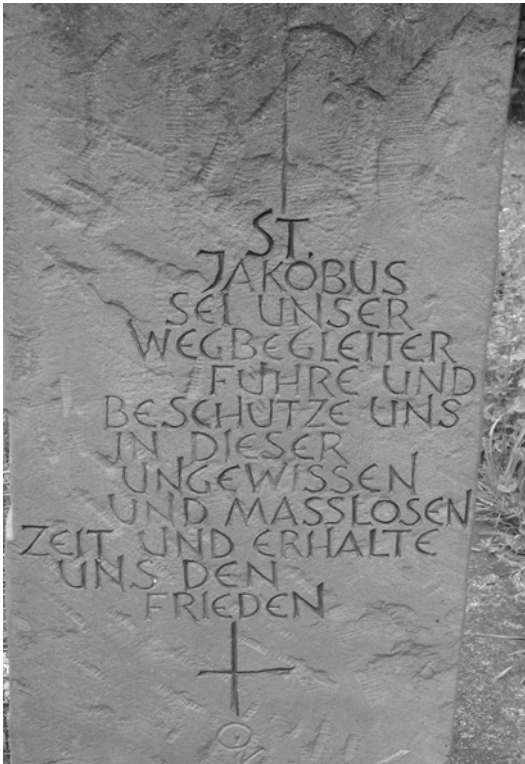 ST.
JAKOBUS
SEI UNSER
WEGBEGLEITER
FÜHRE UND
BESCHÜTZE UNS
IN DIESER
UNGEWISSEN
UND MASSLOSEN
ZEIT UND ERHALTE
UNS DEN
FRIEDEN